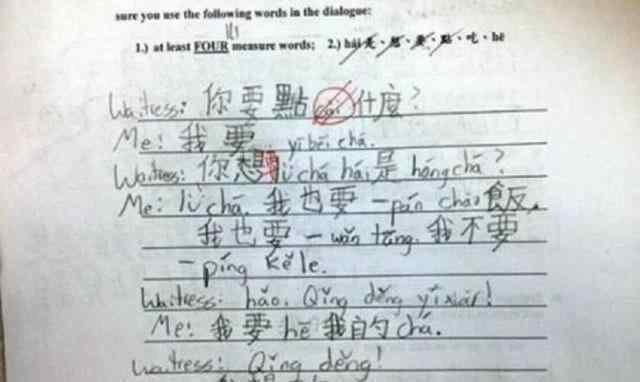 sure you use the following words in the dialogue:
1.) at least FOUR measure words; 2.) hái 是、想、要、點、吃、hē
Waitress: 你要點 cài 什麼?
Me: 我要 yì bēi chá.
Waitress: 你想要 lǜ chá hái 是 hóng chá?
Me: lǜ chá. 我也要一 pán chǎo 飯.
我也要一 wǎn tāng. 我不要
一 píng kě lè.
Waitress: hǎo. Qǐng děng yí xiàr!
Me: 我要 hē 我的 chá.
Waitress: Qǐng děng!